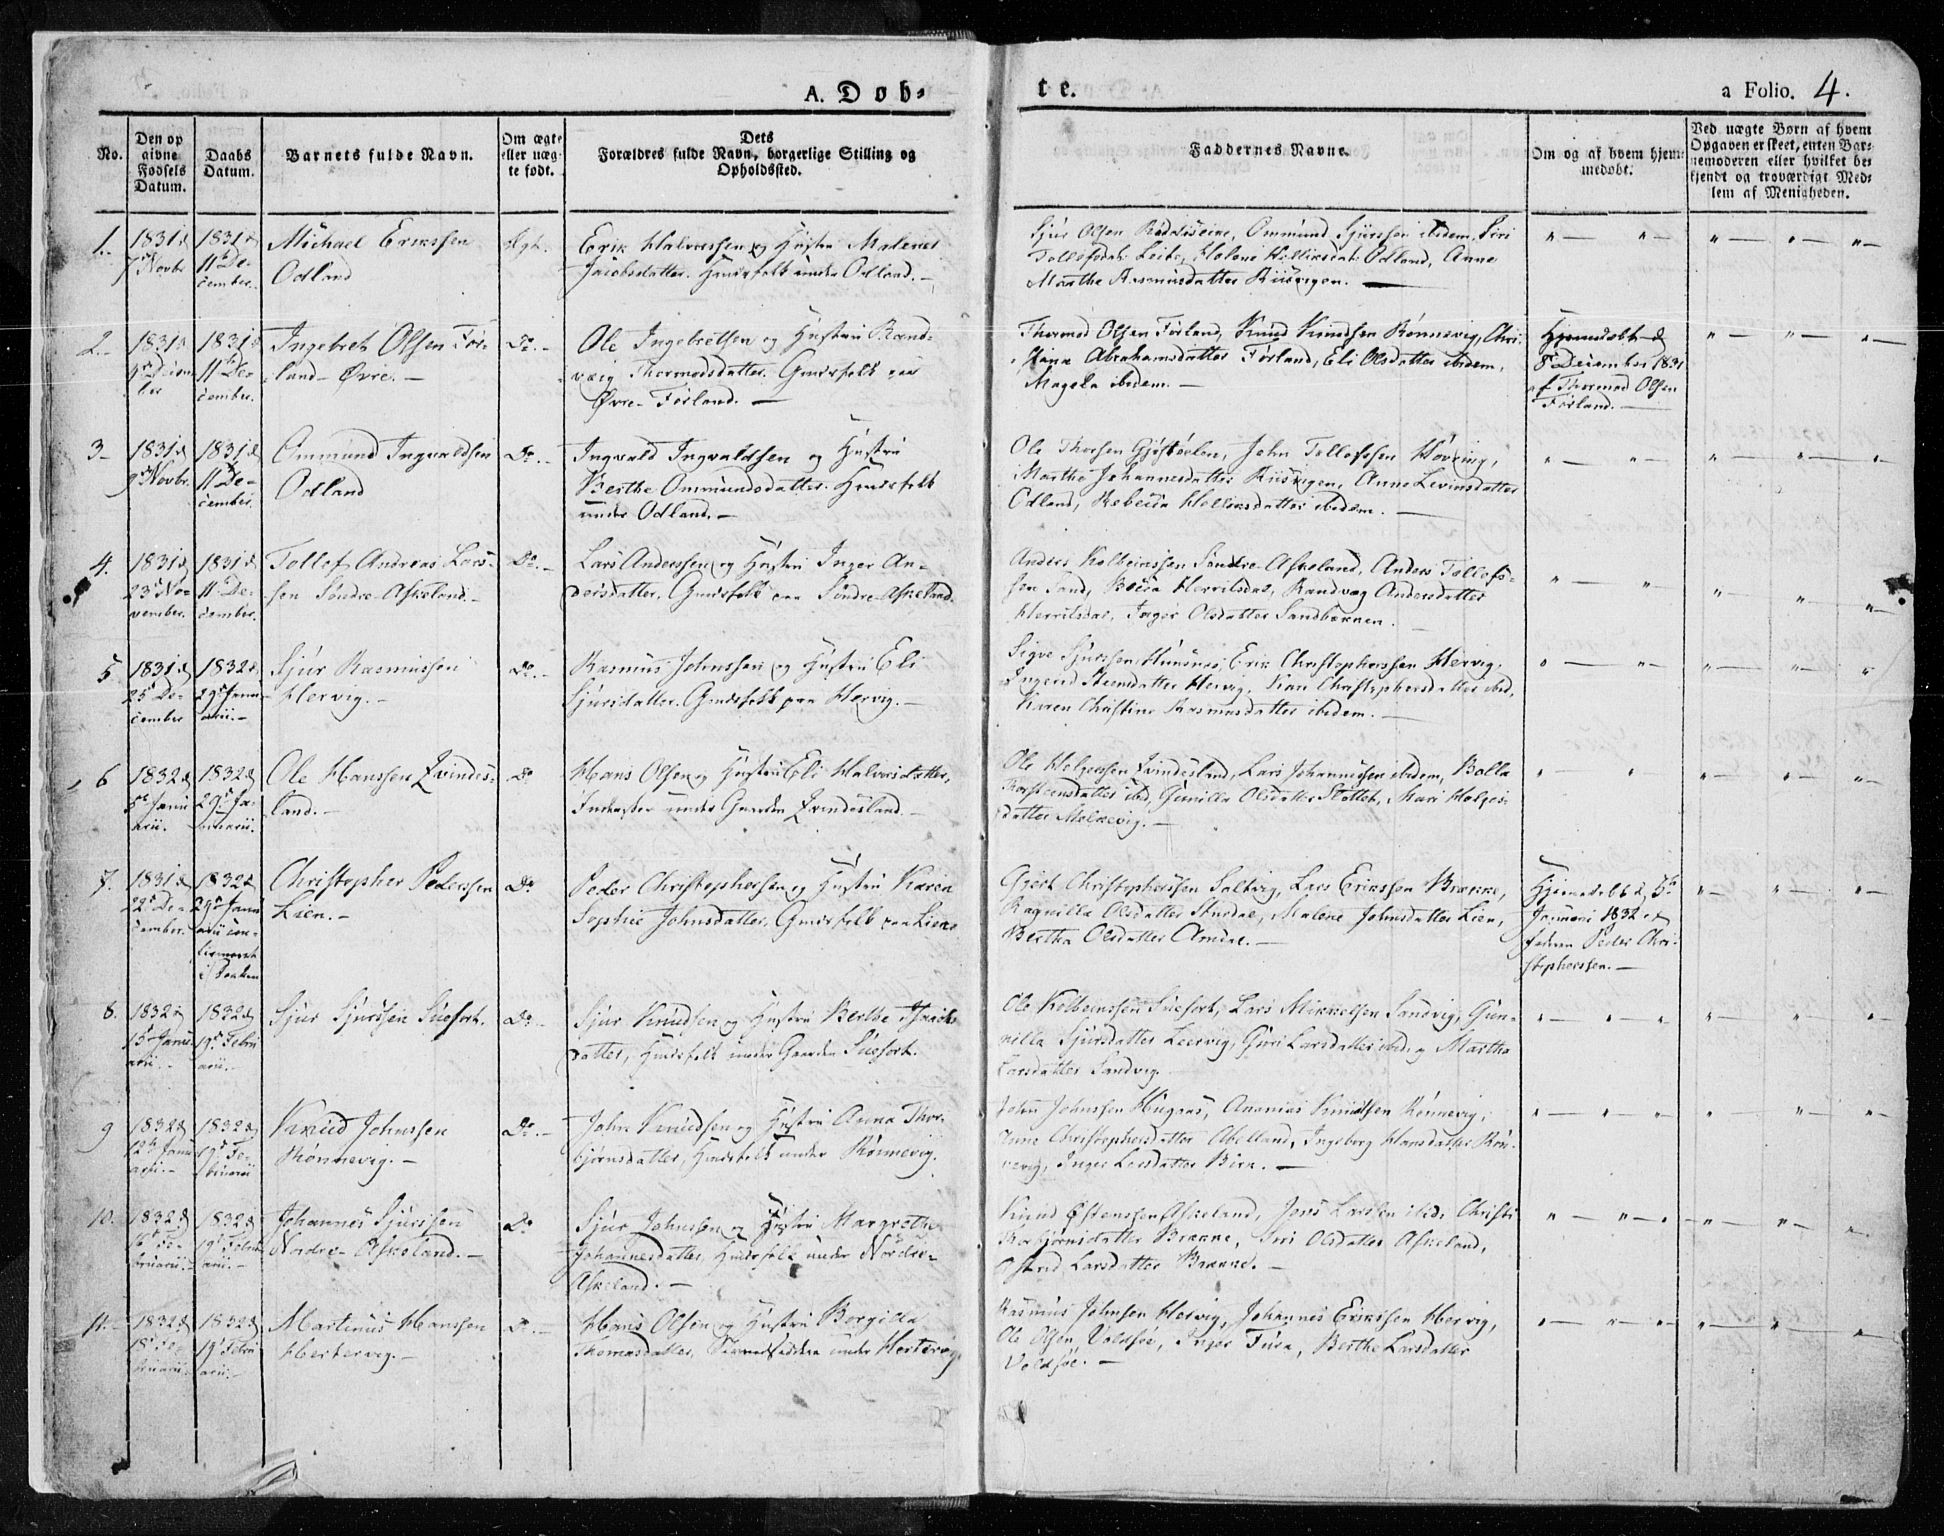 A. Døb-
te.
a Folio. 4.
No.
Den op
givne
Fødsels
Datum.
Daabs
Datum.
Barnets fulde Navn.
Om ægte
eller uæg-
te født.
Dets
Forældres fulde Navn, borgerlige Stilling og
Opholdssted.
Faddernes Navne.
Om og af hvem hjem-
medøbt.
Ved uægte Børn af hvem
Opgaven er skeet, enten Bar-
nemoderen eller hvilket be-
kjendt og troværdigt Med-
lem af Menigheden.
1.
1831 d
7 Novbr
1831 d
11 De-
cember.
Michael Erikssen
Odland
Ægt.
Erik Halvorssen og Hustru Malene
Jacobsdatter. Huusfolk under Odland.
Sjur Olsen, Ommund Sjurssen ibidem, Siri
Tollefsdatter, Helene Odland, Anne
Marthe Rasmusdatter Riisvigen.
2.
1831 d
December
1831 d
11 De-
cember.
Ingebret Olsen Før-
land Øvre.
Do.
Ole Ingebretsen og Hustru Rand-
væig Thormodsdatter. Gaardfolk paa
Øvre-Førland.
Thormod Olsen Førland, Knud Knudsen Rønnevig, Chri-
stina Abrahamsdatter Førland, Eli Olsdatter ibidem,
Magela ibidem.
Hjemmedøbt d
8 December 1831
af Thormod Olsen
Førland.
3
1831 d
9 Novbr.
1831 d
11 De-
cember.
Ommund Ingvaldsen
Odland
Do.
Ingvald Ingvaldsen og Hustru
Berthe Ommundsdatter. Huusfolk
under Odland.
Ole Thorsen, John Tollefssen Høvring,
Marthe Johannesdatter Riisvigen, Anne Levinsdatter
Odland, Rebecca ibidem.
4.
1831 d
23 No-
vember.
1831 d
11 De-
cember.
Tollef Andreas Lars-
sen Søndre-Askeland.
Do.
Lars Anderssen og Hustru Inger An-
dersdatter. Gaardfolk paa Søndre-Askeland.
Anders Kolbeinssen Søndre-Askeland, Anders Tollefs-
sen Sand, Randvæg Andersdatter
Inger Olsdatter
5
1831 d
25 De-
cember
1832 d
29 Janu-
arii.
Sjur Rasmussen
Hervig.
Do.
Rasmus Johnssen og Hustru Eli
Sjursdatter. Gaardfolk paa Hervig.
Sigve Sjurssen, Erik Christophersen Hervig,
Ingerid Steensdatter Hervig, Kari Christophersdatter ibid,
Karen Christine Rasmusdatter ibidem.
6
1832 d
5 Janu
arii.
1832 d
29 Ja-
nuarii.
Ole Hanssen Qvindes-
land.
Do
Hans Olsen og Hustru Eli Halvorsdatter,
Inderster under Gaarden Qvindesland.
Ole Helgessen Qvindesland, Lars Johannessen ibidem, Bolla
Thorsteensdatter ibid, Gunilla Olsdatter, Kari Helges-
datter Melkevig.
7.
1831 d
22 De-
cember.
1832 d
29 Janu
arii con-
firmeret
i Daaben
Christopher Pederssen
Lien.
Do
Peder Christophersen og Hustru Karen
Sophie Johnsdatter. Gaardfolk paa Lien.
Gjert Christopherssen Saltvig, Lars Erikssen Brække,
Ragnilla Olsdatter, Malene Johnsdatter Lien,
Bertha Olsdatter Amdal.
Hjemmedøbt d 5
Januari 1832 af
faderen Peder Chri-
stopherssen.
8.
1832 d
15 Janu-
arii.
1832 d
19 Febru
arii.
Sjur Sjurssen Suefort.
Do
Sjur Knudsen og Hustru Berthe Isacks-
datter, Huusfolk under Gaarden Suefort.
Ole Kolbeinssen Suefort, Lars Mikkelsen Sandvig, Gun-
nilla Sjursdatter Leervig, Guri Larsdatter ibid. og Martha
Larsdatter Sandvig.
9
1832 d
12 Janu-
arii.
1832 d
19 Fe-
bruarii
Knud Johnssen
Rønnevig.
Do.
John Knudsen og Hustru Anna Thor-
bjørnsdatter, Huusfolk under Rønnevig.
John Johnssen, Ananias Knudsen Rønnevig,
Anne Christophersdatter Abelland, Ingeborg Hansdatter Røn-
nevig, Inger Larsdatter
10.
1832 d
16 Fe-
bruarii.
1832 d
19 Febru
arii.
Johannes Sjurssen
Nordre-Askeland.
Do
Sjur Johnsen og Hustru Margrethe
Johannesdatter, Huusfolk under Nordre-
Askeland.
Knud Østenssen Askeland, Jens Larssen ibid. Christi
Thorbjørnsdatter Brække, Siri Olsdatter Askeland,
Astrid Larsdatter Brække.
11.
1832 d
18 Fe-
bruarii.
1832 d
19 Febru
arii.
Martinus Hanssen
Hertervig.
Do.
Hans Olsen og Hustru Borgilla
Thomasdatter, under Hertervig.
Rasmus Johnsen Hervig, Johannes Erikssen Hervig,
Ole Olsen Voldsøe, Berthe Larsdatter
Voldsøe.